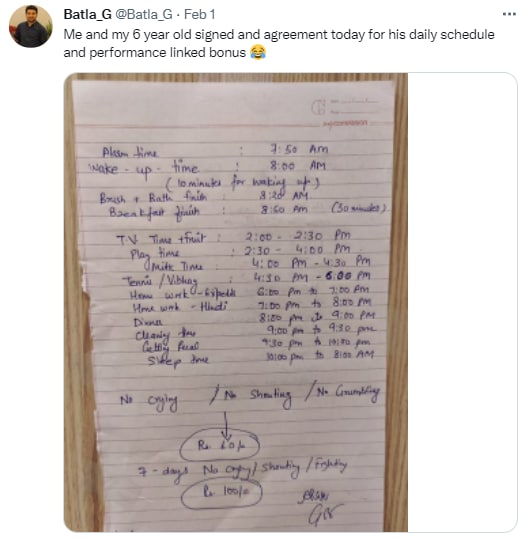 Batla_G @Batla_G · Feb 1
Me and my 6 year old signed and agreement today for his daily schedule
and performance linked bonus 😂
Alarm time : 7:50 Am
Wake-up-time : 8:00 AM
(10 minutes for waking up)
Brush + Bath finish : 8:20 AM
Breakfast finish : 8:50 Am (30 minutes)
TV Time + fruit : 2:00 - 2:30 Pm
Play time : 2:30 - 4:00 Pm
Milk Time : 4:00 Pm - 4:30 Pm
Tennis / : 4:30 PM - 6:00 Pm
Home work - 6:00 Pm to 7:00 Pm
Home work - Hindi 7:00 Pm to 8:00 Pm
Dinner 8:00 pm to 9:00 PM
Cleaning time 9:00 pm to 9:30 pm
9:30 pm to 10:00 pm
Sleep time 10:00 pm to 8:00 AM
No Crying / No Shouting / No Grumbling
Rs 10/-
7-days No Crying / Shouting / Fighting
Rs 100/-